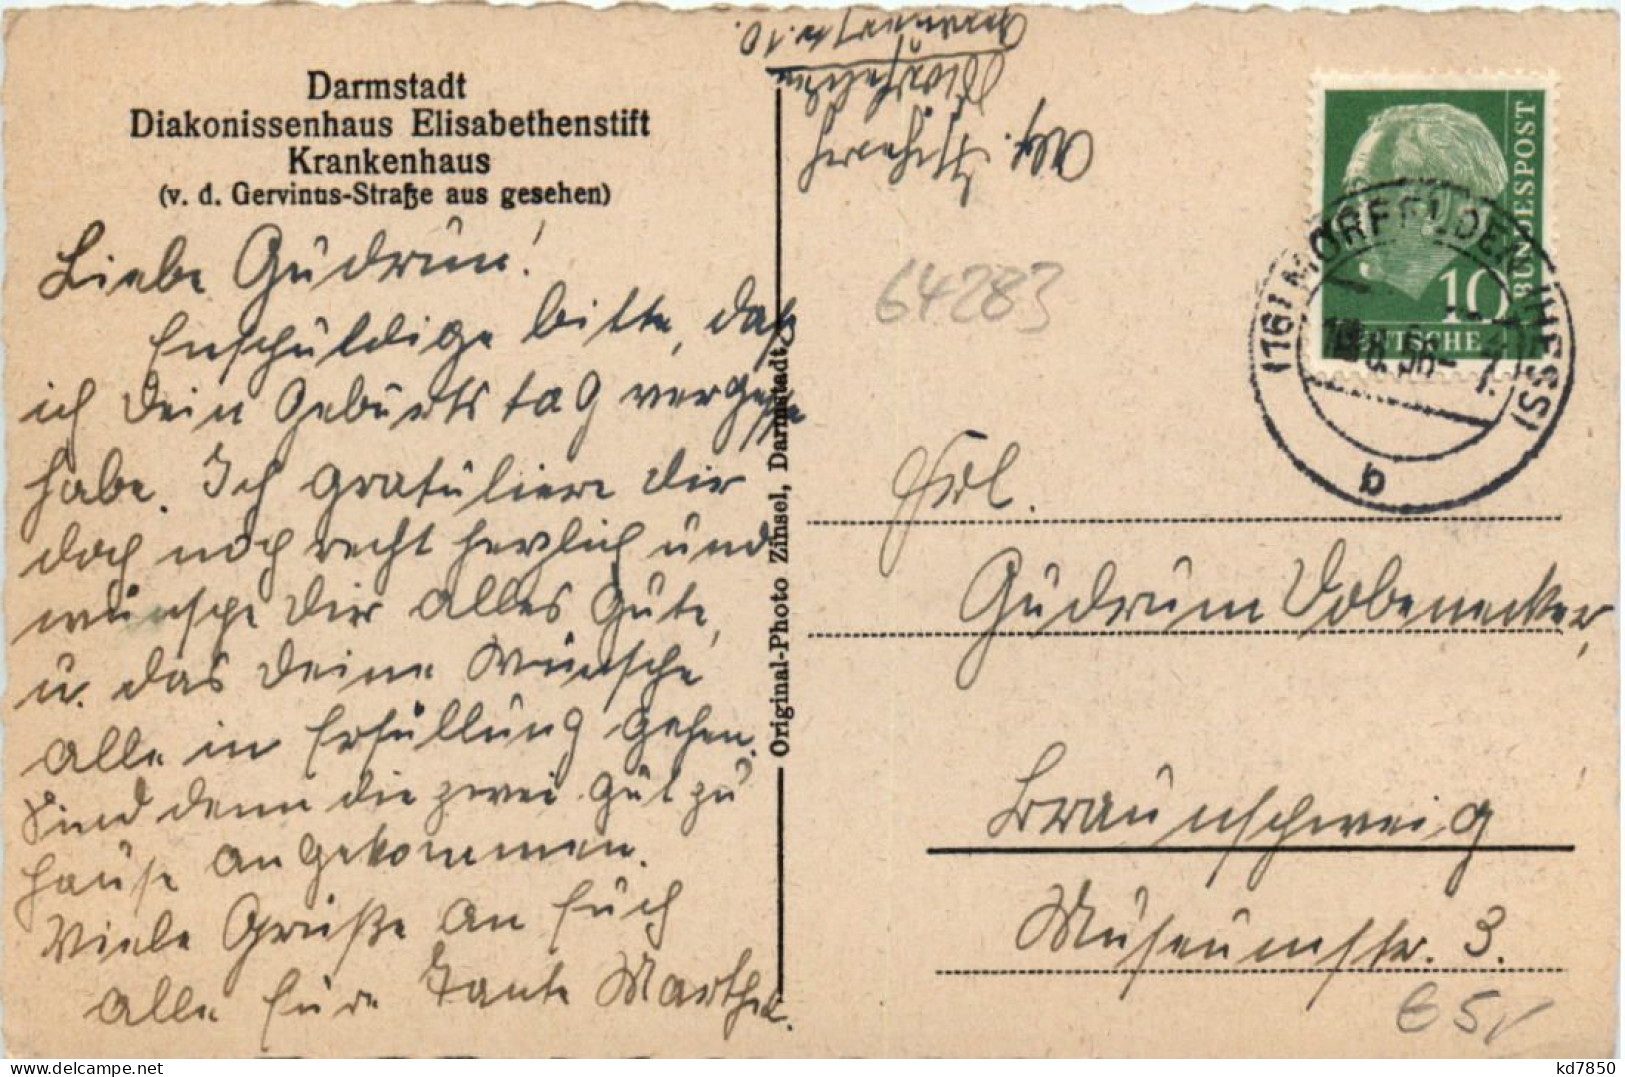 Darmstadt
Diakonissenhaus Elisabethenstift
Krankenhaus
(v. d. Gervinus-Straße aus gesehen)
Liebe Gudrun!
Enschuldige bitte, daß
ich Dein Geburtstag vergessen
habe. Ich gratuliere dir
doch noch recht herzlich und
wünsche Dir alles Gute,
u. das deine Wünsche
alle in Erfüllung gehen.
Sind denn die zwei gut zu
hause angekommen.
Viele Grüße an Euch
alle Eure Tante Marthel.
Original-Photo Zinsel, Darmstadt
Abs.
Mörfelden
10.
64283
(16) MÖRFELDEN (HESS)
56
b
10
DEUTSCHE
BUNDESPOST
Frl.
Gudrun Dobenecker,
Braunschweig
Museumstr. 3.
€5,-
kd7850